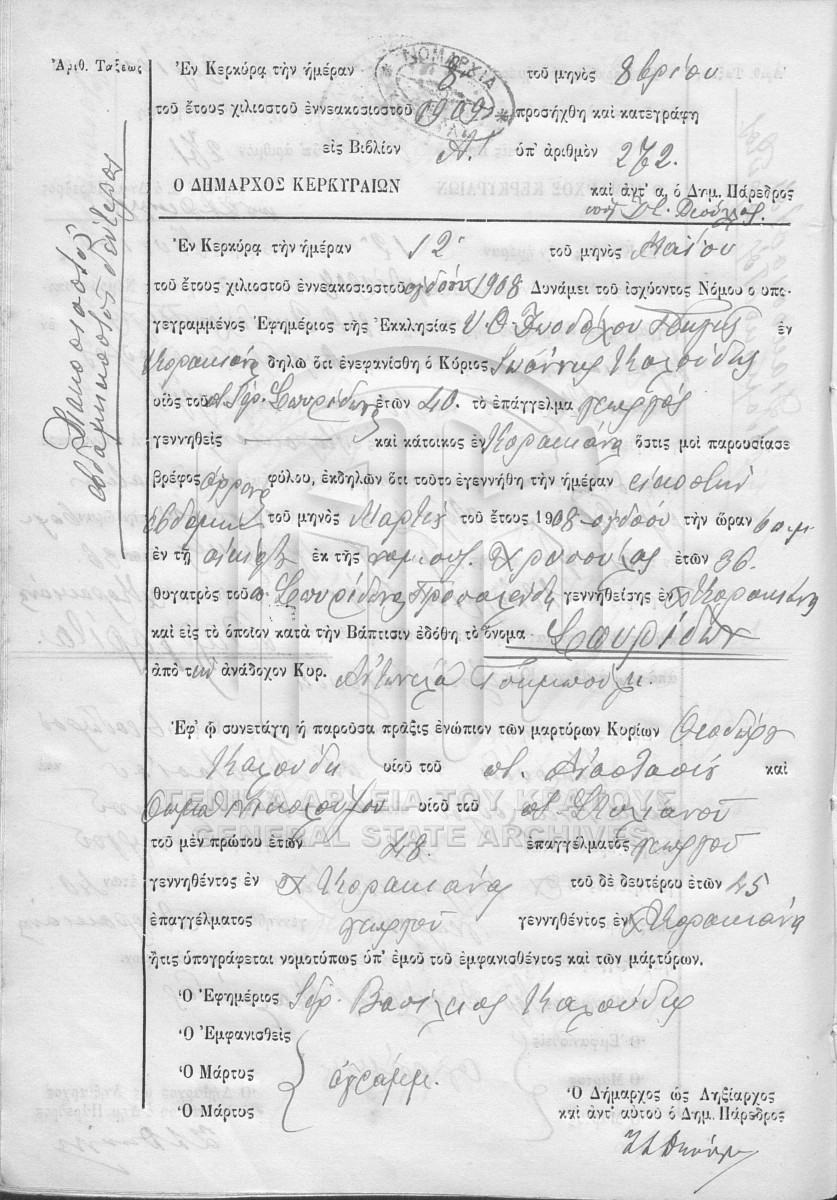 Ἀριθ. Τάξεως
Διακοσιοστὸς
ἑβδομηκοστὸς δεύτερος
ΝΟΜΑΡΧΙΑ
Ἐν Κερκύρᾳ τὴν ἡμέραν 8 τοῦ μηνὸς 8βρίου
τοῦ ἔτους χιλιοστοῦ ἐννεακοσιοστοῦ 1909 προσήχθη καὶ κατεγράφη
εἰς Βιβλίον Α' ὑπ' ἀριθμὸν 272.
Ὁ ΔΗΜΑΡΧΟΣ ΚΕΡΚΥΡΑΙΩΝ καὶ ἀντ' α, ὁ Δημ. Πάρεδρος
Ἐν Κερκύρᾳ τὴν ἡμέραν 12 τοῦ μηνὸς Μαΐου
τοῦ ἔτους χιλιοστοῦ ἐννεακοσιοστοῦ ὀγδόου 1908 Δυνάμει τοῦ ἰσχύοντος Νόμου ὁ υπο-
γεγραμμένος Ἐφημέριος τῆς Ἐκκλησίας Υ. Θ. ἐν
Κορακιάνᾳ δηλῶ ὅτι ἐνεφανίσθη ὁ Κύριος Ἰωάννης Καλούδης
υἱὸς τοῦ Σπυρίδων ἐτῶν 40. τὸ ἐπάγγελμα γεωργὸς
γεννηθεὶς — καὶ κάτοικος ἐν Κορακιάνᾳ ὅστις μοὶ παρουσίασε
βρέφος ἄρρενος φύλου, ἐκδηλῶν ὅτι τοῦτο ἐγεννήθη τὴν ἡμέραν εἰκοστὴν
ἑβδόμην τοῦ μηνὸς Μαρτίου τοῦ ἔτους 1908 ὀγδόου τὴν ὥραν 6 π.μ.
ἐν τῇ οἰκίᾳ ἐκ τῆς νομίμου Χρυσούλας ἐτῶν 36.
θυγατρὸς τοῦ Σπυρίδωνα γεννηθείσης ἐν χ Κορακιάνᾳ
καὶ εἰς τὸ ὁποῖον κατὰ τὴν Βάπτισιν ἐδόθη τὸ ὄνομα Σπυρίδων
ἀπὸ τὴν ἀνάδοχον Κυρ. Ἀντωνέλα
Ἐφ' ᾧ συνετάγη ἡ παροῦσα πρᾶξις ἐνώπιον τῶν μαρτύρων Κυρίων Θεοδώρου
Καλούδη υἱοῦ τοῦ ποτ. Ἀναστασίου καὶ
Θωμᾶ υἱοῦ τοῦ ποτ. Στυλιανοῦ
τοῦ μὲν πρώτου ἐτῶν 48. ἐπαγγέλματος γεωργοῦ
γεννηθέντος ἐν χ Κορακιάνᾳ τοῦ δὲ δευτέρου ἐτῶν 45
ἐπαγγέλματος γεωργοῦ γεννηθέντος ἐν χ Κορακιάνᾳ
ἥτις ὑπογράφεται νομοτύπως ὑπ' ἐμοῦ τοῦ ἐμφανισθέντος καὶ τῶν μαρτύρων.
ΓΕΝΙΚΑ ΑΡΧΕΙΑ ΤΟΥ ΚΡΑΤΟΥΣ
GENERAL STATE ARCHIVES
Ὁ Ἐφημέριος Ἱερ. Βασίλειος Καλούδης
Ὁ Ἐμφανισθεὶς
Ὁ Μάρτυς ἀγράμμ.
Ὁ Μάρτυς
Ὁ Δήμαρχος ὡς Ληξίαρχος
καὶ ἀντ' αὐτοῦ ὁ Δημ. Πάρεδρος